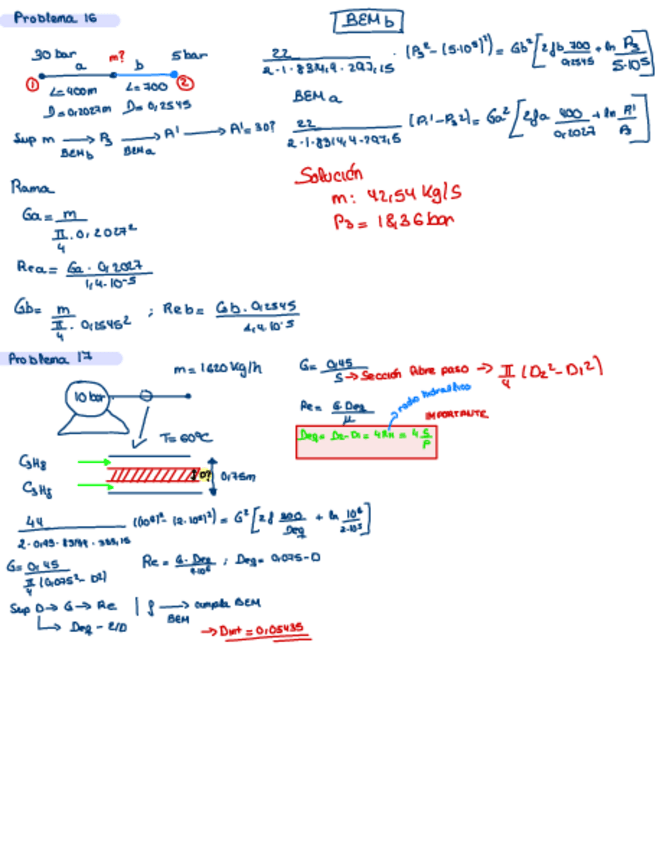 Problema 16
BEM b
30 bar m? 5 bar
a b
① ②
L=400m L=700
D=0,2027m D=0,2545
Sup m → P3 → P1' → P1'=30?
BEMb BEMa
22 / 2·1·8314,4·297,15 · (P3² - (5·10⁵)²) = Gb² [2fb 700/0,2545 + ln P3/5·10⁵]
BEM a
22 / 2·1·8314,4·297,5 (P1'-P3²) = Ga² [2fa 400/0,2027 + ln P1'/P3]
Solución
m: 42,54 Kg/s
P3 = 18,36 bar
Rama
Ga = m / π/4 · 0,2027²
Rea = Ga · 0,2027 / 1,4·10⁻⁵
Gb = m / π/4 · 0,2545² ; Reb = Gb · 0,2545 / 1,4·10⁻⁵
Problema 17
m = 1620 Kg/h
10 bar
T = 60ºC
C3H8
C3H8
D? 0,75m
G = 0,45 / S → Sección libre paso → π/4 (D2² - D1²)
Re = G Deq / μ
radio hidraulico
IMPORTANTE
Deq = D2-D1 = 4RH = 4 S/P
44 / (10⁶)² - (2·10⁵)²) = G² [2f 300/Deq + ln 10⁶/2·10⁵]
G = 0,45 / π/4 (0,075² - D²)
Re = G·Deq / ; Deq = 0,075-D
Sup D → G → Re | f → cumpla BEM
↳ Deq - E/D BEM
→ Dint = 0,05435